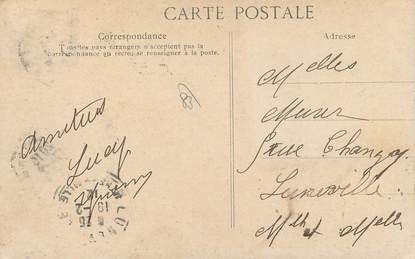 CARTE POSTALE
Correspondance
Tous les pays étrangers n'acceptent pas la
correspondance au recto, se renseigner à la poste.
Adresse
Amitiés
Lucy
Melles
rue Changy
Lunéville
Mthe et Melle